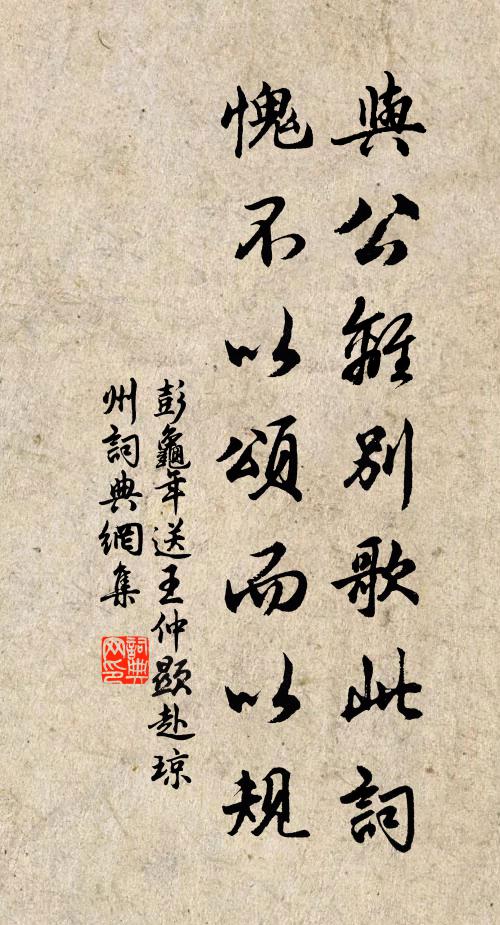 與公離別歌此詞
愧不以頌而以規
彭龜年送王仲顯赴琼
州詞典網集
詞典
网印